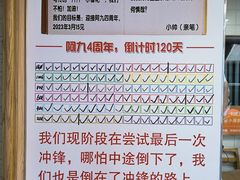 不怕！加油！
我们的目标是：迎接阿九四周年。
2023年3月15元
何情理？
小帅（亲笔）
阿九4周年，倒计时120天
我们现阶段在尝试最后一次
冲锋，哪怕中途倒下了，我
们也是倒在了冲锋的路上